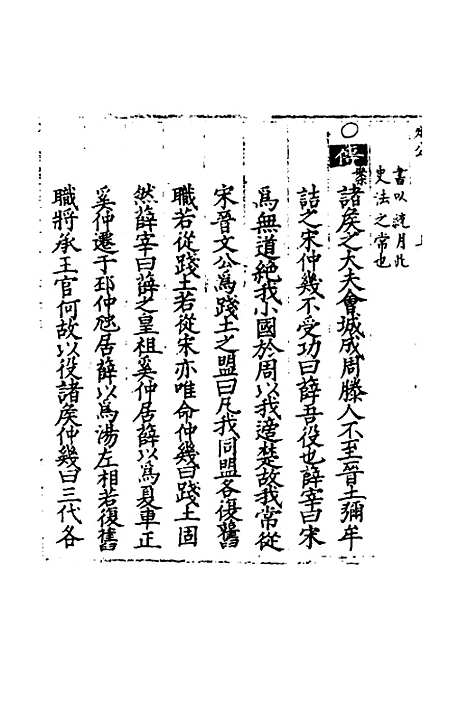 書以 繞月此
史法之常也
傳
諸矦之大夫會城成周滕人不至晉士彌牟
詰之宋仲幾不受功曰薛吾役也薛宰曰宋
爲無道絶我小國於周以我適楚故我常從
宋晉文公爲踐土之盟曰凡我同盟各復舊
職若從踐土若從宋亦唯命仲幾曰踐土固
然薛宰曰薛之皇祖奚仲居薛以爲夏車正
奚仲遷于邳仲虺居薛以爲湯左相若復舊
職將承王官何故以役諸矦仲幾曰三代各